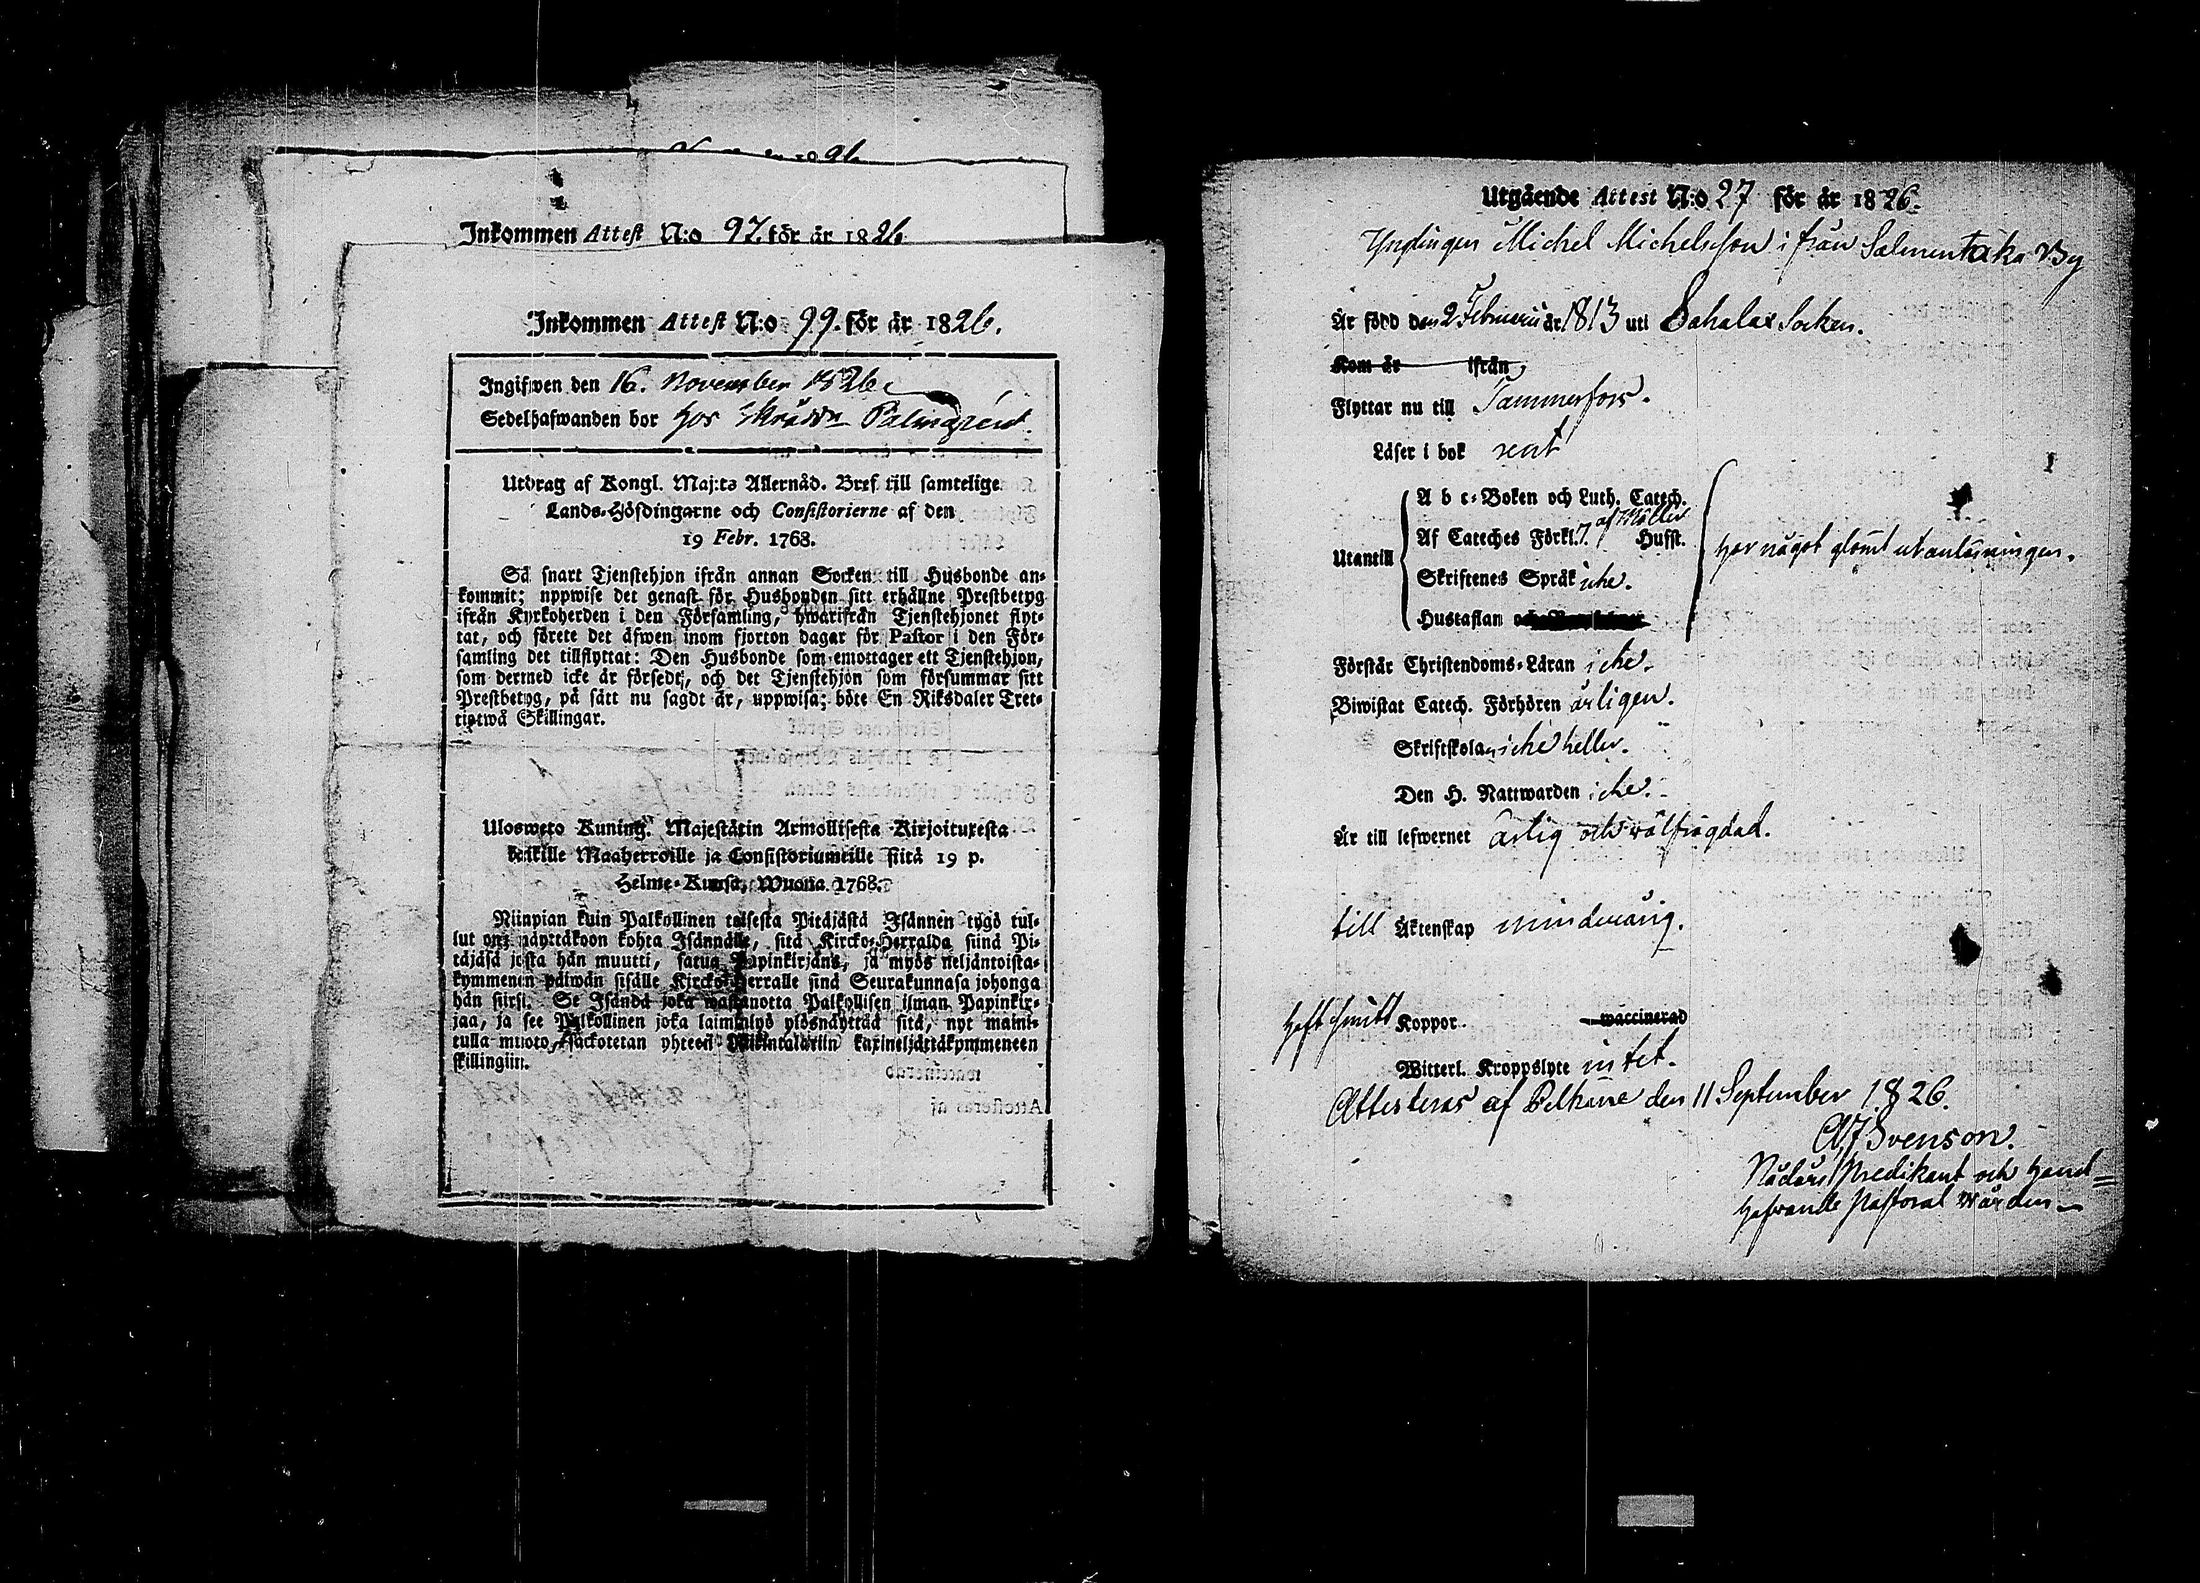 Inkommen Attest N:o 97. för år 1826
Inkommen Attest N:o 99. för år 1826.
Ingifwen den 16. November 1826.
Sedelhafwanden bor hos Skräddr Palmgren
Utdrag af Kongl. Maj:ts Allernåd. Bref till samtelige
Lands-Höfdingarne och Consistorierne af den
19 Febr. 1768.
Så snart Tjenstehjon ifrån annan Socken till Husbonde an-
kommit; uppwise det genast för Husbonden sitt erhållne Prestbetyg
ifrån Kyrkoherden i den Församling, hwarifrån Tjenstehjonet flyt-
tat, och förete det äfwen inom fjorton dagar för Pastor i den För-
samling det tillflyttat: Den Husbonde som emottager ett Tjenstehjon,
som dermed icke är försedt, och det Tjenstehjon som försummar sitt
Prestbetyg, på sätt nu sagdt är, uppwisa; böte En Riksdaler Tret-
tiotwå Skillingar.
Ulosweto Kuning. Majestätin Armollisesta Kirjoituxesta
kaikille Maaherroille ja Consistoriumeille siitä 19 p.
Helme-Kuusa, Wuona 1768.
Niinpian kuin Palkollinen toisesta Pitäjästä Isännen tygö tul-
lut on; näyttäkoon kohta Isännälle, sitä Kircko-Herralda siinä Pi-
täjäsä josta hän muutti, saatua Papinkirjäns, ja myös neljäntoista-
kymmenin päiwän sisälle Kircko-Herralle siinä Seurakunnasa johonga
hän siirsi. Se Isändä joka wastanotta Palkollisen ilman Papinkir-
jaa, ja see Palkollinen joka laiminlyö ylösnäyttää sitä, nyt maini-
tulla muoto, sackotetan yhteen Riikintalariin kaxineljättäkymmeneen
skillingiin.
Utgående Attest N:o 27 för år 1826.
Ynglingen Michel Michelsson ifrån Salmentaka By
Är född den 2 Februarii år 1813 uti Sahalax Socken.
Kom år ifrån
Flyttar nu till Tammerfors.
Läser i bok rent
A b c-Boken och Luth. Catech.
af Möller
Utantill Af Cateches Förkl. 7. Hufst.
har något glömt utanläsningen.
Skriftenes Språk icke.
Hustaflan
Förstår Christendoms-Läran icke.
Biwistat Catech. Förhören årligen.
Skriftskolan icke heller.
Den H. Nattwarden icke.
Är till lefwernet ärlig och wälfrägdad.
till Äktenskap minderårig.
haft Koppor. waccinerad
Witterl. Kroppslyte intet.
Attesteras af Pelkäne den 11 September 1826.
Svenson.
Nådårs Predikant och hand=
hafvande Pastoral wården